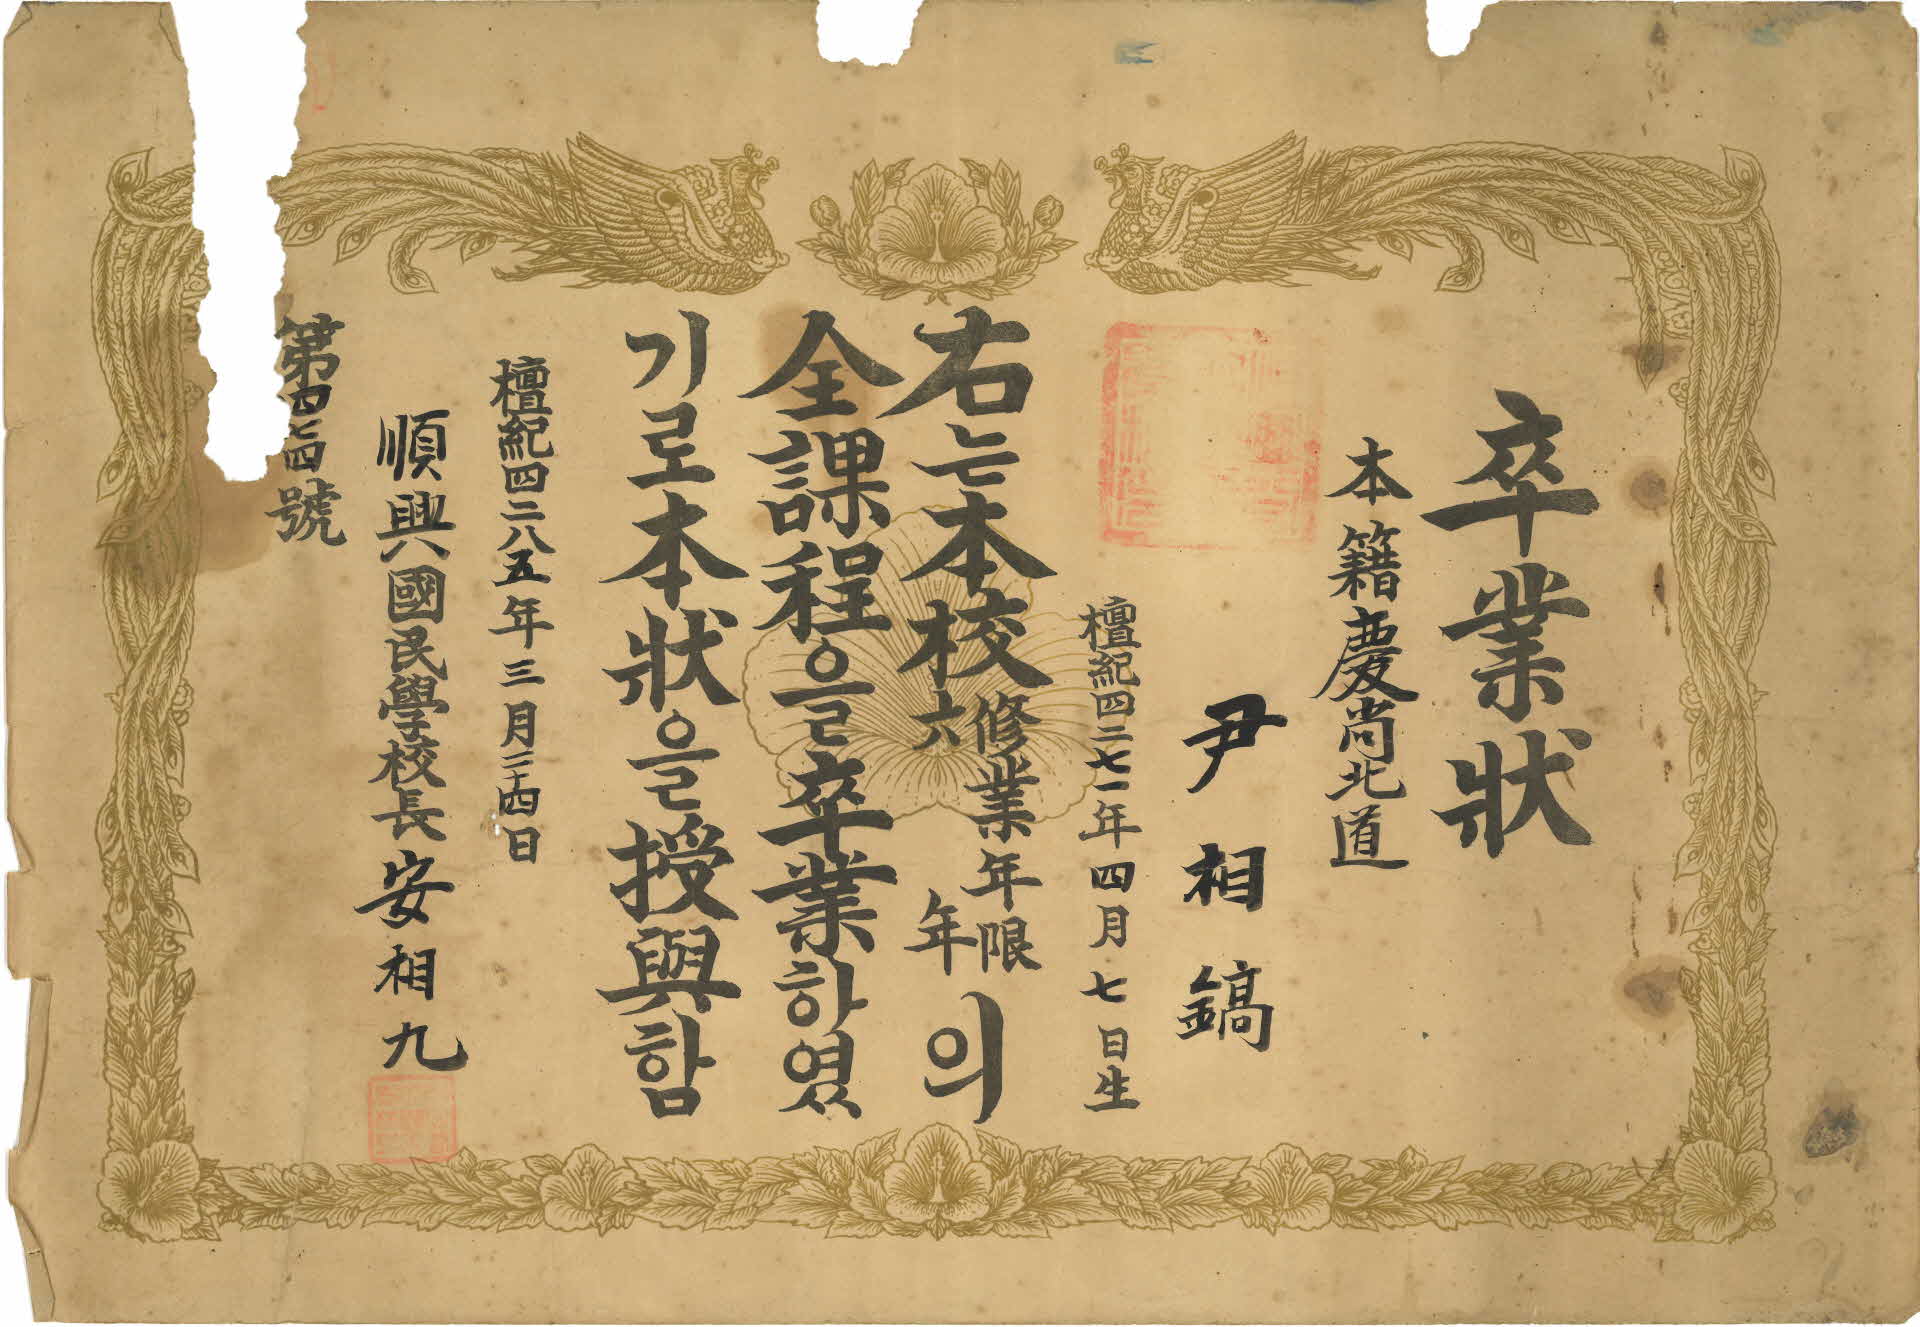 卒業狀
本籍慶尙北道
尹相鎬
檀紀四二七一年四月七日生
右는本校修業年限六年의
全課程을卒業하였
기로本狀을授與함
檀紀四二八五年三月二十四日
順興國民學校長安相九
第四七四號